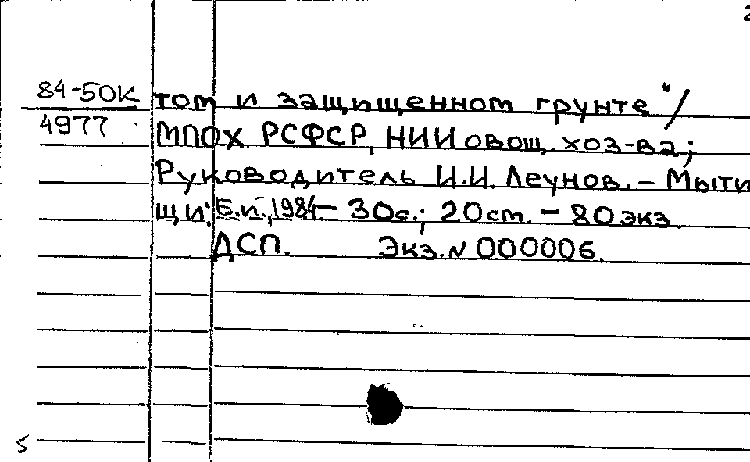 2
84-50К том и защищенном грунте"/
4977 МПОХ РСФСР, НИИ овощ. хоз-ва;
Руководитель И.И. Леунов. - Мыти
щи: Б.и., 1984 - 30с.; 20см. - 80экз.
ДСП. Экз. № 000006.
5